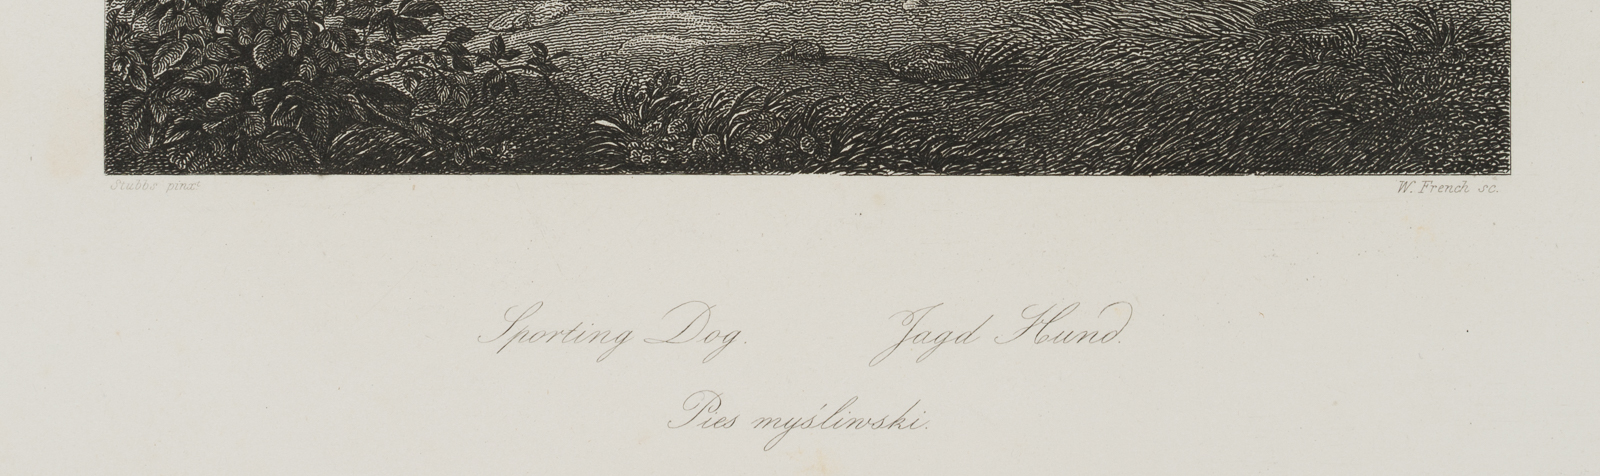 Stubbs pinxt. W. French sc.
Sporting Dog. Jagd Hund.
Pies myśliwski.